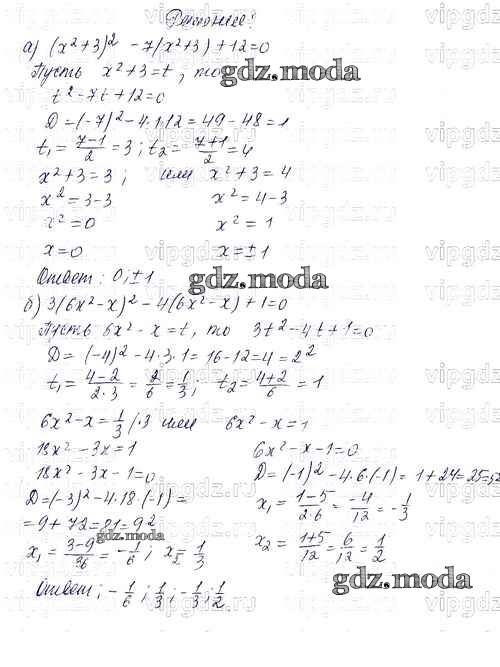 Решение:
а) (x²+3)² - 7(x²+3) + 12=0
Пусть x²+3=t, то
gdz.moda
t²-7t+12=0
D=(-7)²-4·1·12=49-48=1
t₁=(7-1)/2=3; t₂=(7+1)/2=4
x²+3=3; или x²+3=4
x²=3-3 x²=4-3
x²=0 x²=1
x=0 x=±1
Ответ: 0; ±1
gdz.moda
б) 3(6x²-x)²-4(6x²-x)+1=0
Пусть 6x²-x=t, то 3t²-4t+1=0
D=(-4)²-4·3·1=16-12=4=2²
t₁=(4-2)/(2·3)=2/6=1/3; t₂=(4+2)/6=1
6x²-x=1/3 /·3 или 6x²-x=1
18x²-3x=1 6x²-x-1=0
18x²-3x-1=0 D=(-1)²-4·6·(-1)=1+24=25=5²
D=(-3)²-4·18·(-1)= x₁=(1-5)/(2·6)=-4/12=-1/3
=9+72=81=9²
gdz.moda
x₁=(3-9)/36=-1/6; x₂=1/3 x₂=(1+5)/12=6/12=1/2
gdz.moda
Ответ: -1/6; 1/3; -1/3; 1/2